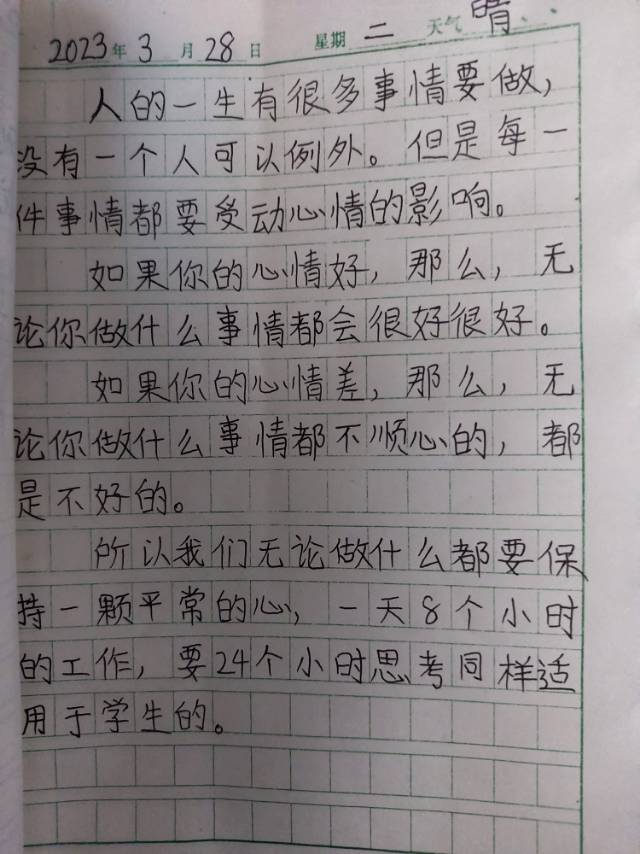 2023年3月28日 星期二 天气晴
人的一生有很多事情要做，
没有一个人可以例外。但是每一
件事情都要受动心情的影响。
如果你的心情好，那么，无
论你做什么事情都会很好很好。
如果你的心情差，那么，无
论你做什么事情都不顺心的，都
是不好的。
所以我们无论做什么都要保
持一颗平常的心，一天8个小时
的工作，要24个小时思考同样适
用于学生的。